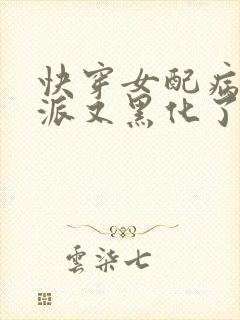 快穿女配病
派又黑化了
雲染七